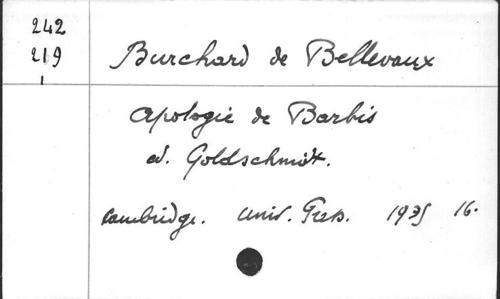 242
219
1
Burchard de Bellevaux
Apologie de Barbis
ed. Goldschmidt.
Cambridge. Univ. Press. 1935 16.